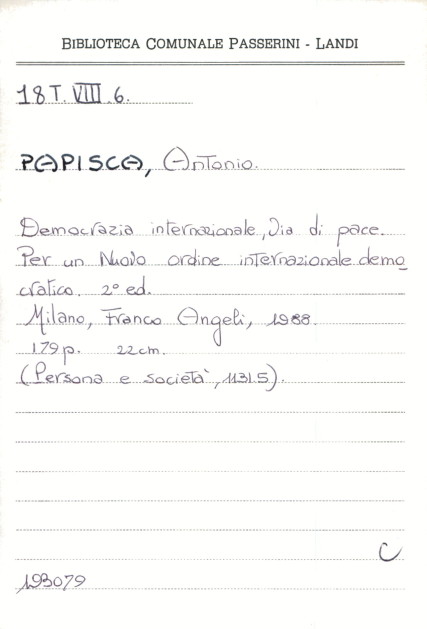 BIBLIOTECA COMUNALE PASSERINI - LANDI
18 T. VIII. 6.
PAPISCA, Antonio.
Democrazia internazionale, via di pace.
Per un Nuovo ordine internazionale demo
cratico. 2° ed.
Milano, Franco Angeli, 1988.
179 p. 22 cm.
(Persona e società, 1131.5).
C
193079